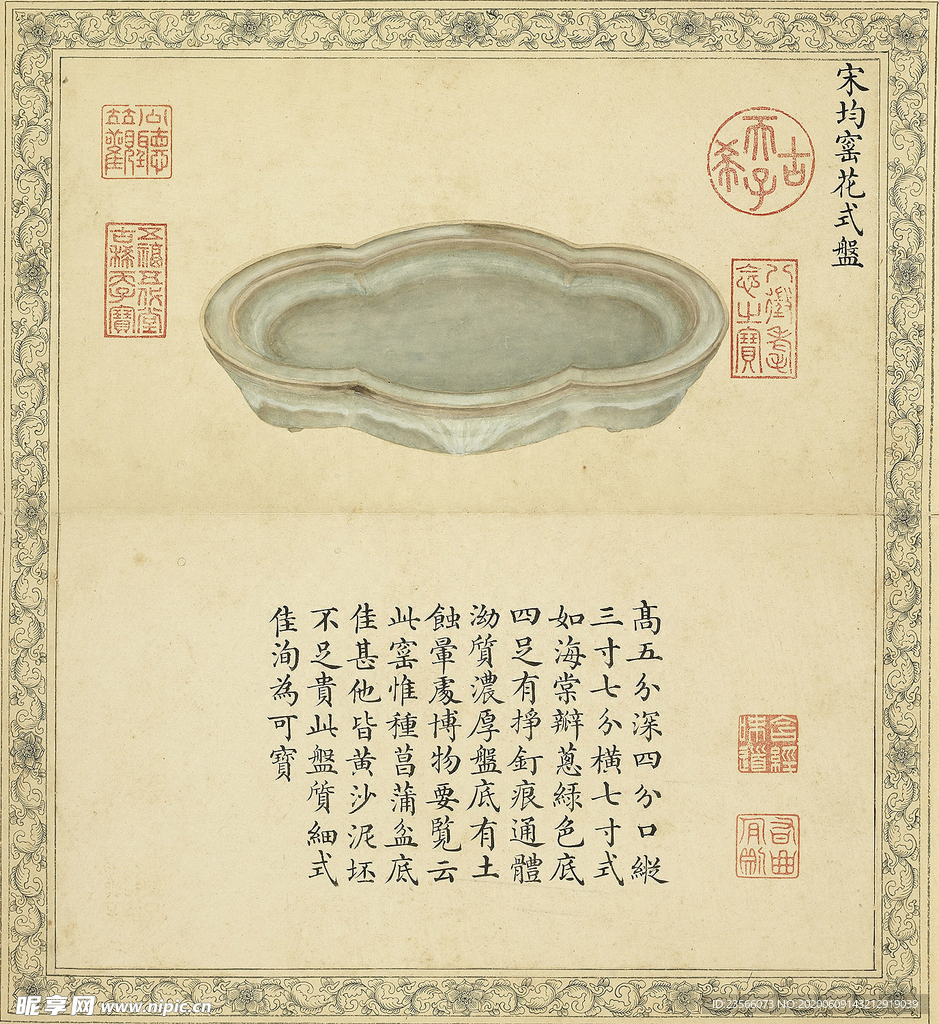 宋均窑花式盤
古
天子
希
八徵耄
念之寶
五福五代堂
古稀天子寶
高五分深四分口縱
三寸七分橫七寸式
如海棠瓣蔥綠色底
四足有掙釘痕通體
泑質濃厚盤底有土
蝕暈處博物要覽云
此窑惟種菖蒲盆底
佳甚他皆黄沙泥坯
不足貴此盤質細式
佳洵為可寶
含經
味道
昵享网 www.nipic.cn
ID:23566073 NO:20290609143212919039